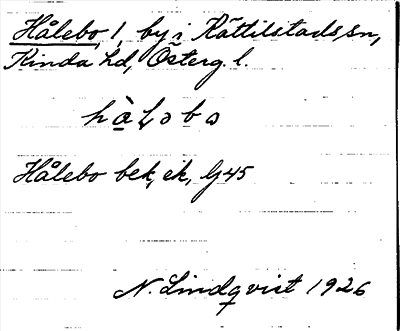 Hålebo, 1 by i Kättilstads sn,
Kinda hd, Österg. l.
Hålebo bek, ek, G45
N. Lindqvist 1926